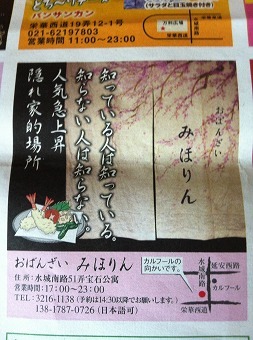 とろ〜りチーズ
(サラダと目玉焼き付き)
バンサンカン
栄華西道19弄12-1号
021-62197803
営業時間 11:00〜23:00
万科広場
栄華西道
知っている人は知っている。
知らない人は知らない？
人気急上昇
隠れ家的場所
おばんざい
みほりん
おばんざい みほりん
住所：水城南路51弄宝石公寓
営業時間：17:00〜23:00
TEL：3216-1138 (予約は14:30以降でお願いします。)
138-1787-0726 (日本語可)
カルフールの
向かいです。
延安西路
水城南路
カルフール
栄華西道